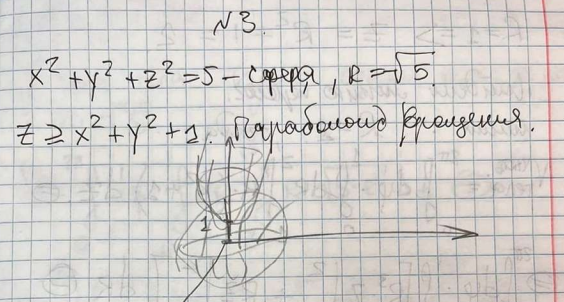 №3.
x² + y² + z² = 5 - сфера, R = √5.
z ≥ x² + y² + 1. Параболоид вращения.
1